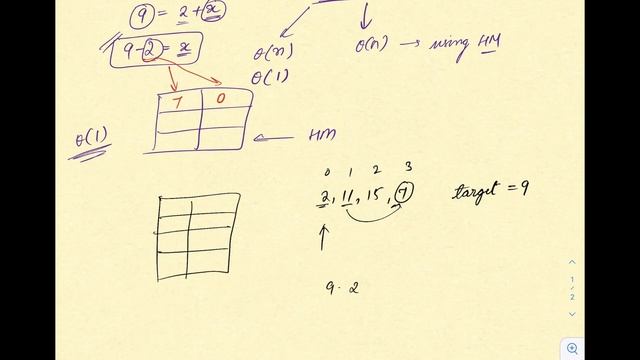 9 = 2 + x
9 - 2 = x
θ(n)
θ(1)
θ(n) → using HM
7 0
θ(1)
HM
0 1 2 3
2, 11, 15, 7
target = 9
9 - 2
1
/
2